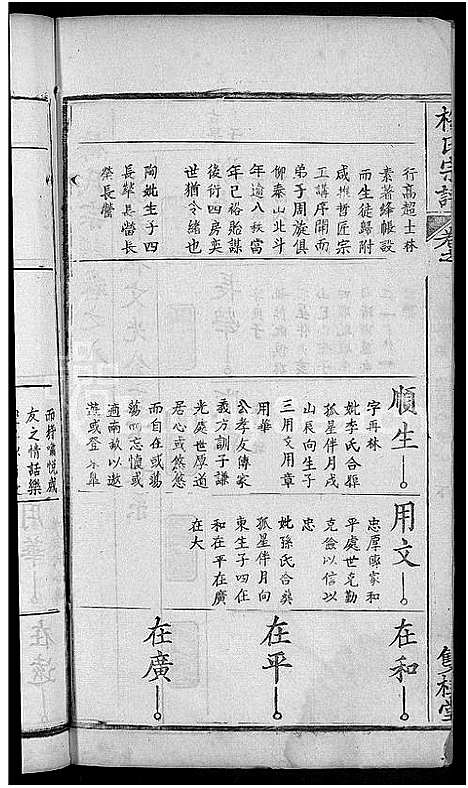 氏宗譜
卷之
行高超士林
素著絳帳設
而生徒歸附
咸推哲匠宗
工講序開而
弟子周旋俱
仰泰山北斗
年逾八秩富
年已裕貽謀
後衍四房奕
世猶令緒也
陶妣生子四
長犖長營長
榮長鶯
順生
字再林
妣李氏合葬
孤星伴月戌
山辰向生子
三用文用章
用華
公孝友傳家
義方訓子謙
光處世厚道
居心或悠悠
而自在或蕩
蕩而忘懷或
適南畝以遨
遊或登東皐
而舒嘯悅戚
友之情話樂
用文
忠厚興家和
平處世克勤
克儉以信以
忠
妣孫氏合葬
孤星伴月向
東生子四在
和在平在廣
在大
用華
在和
在平
在廣
在遠
雙桂堂